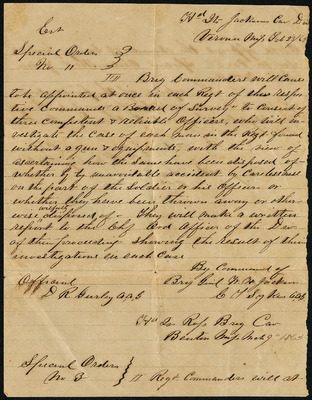 Hd Qts Jacksons Cav Div
Ext
Vernon Miss Feb
Special Orders
No. 11
III Brig Commanders will cause
to be appointed at once in each Regt of their respec
tive commands a Board of Survey to consist of
three competent & reliable Officers, who will in-
vestigate the case of each man in the Regt found
without a gun & equipments, with the view of
ascertaining how the same have been disposed of
whether by unavoidable accident by carelessness
on the part of the Soldier or his Officer or
whether they have been thrown away or other-
wise wilfully disposed of - They will make a written
report to the Chf Ord Officer of the Div
of their proceeding showing the result of their
investigations in each case
By Command of
Official
Brig Genl W H Jackson
R Gurley A A G
Hd Qrs Ross Brig Cav
Benton Miss Mch 9th
Special Orders
No 3
II Regt Commanders will at-